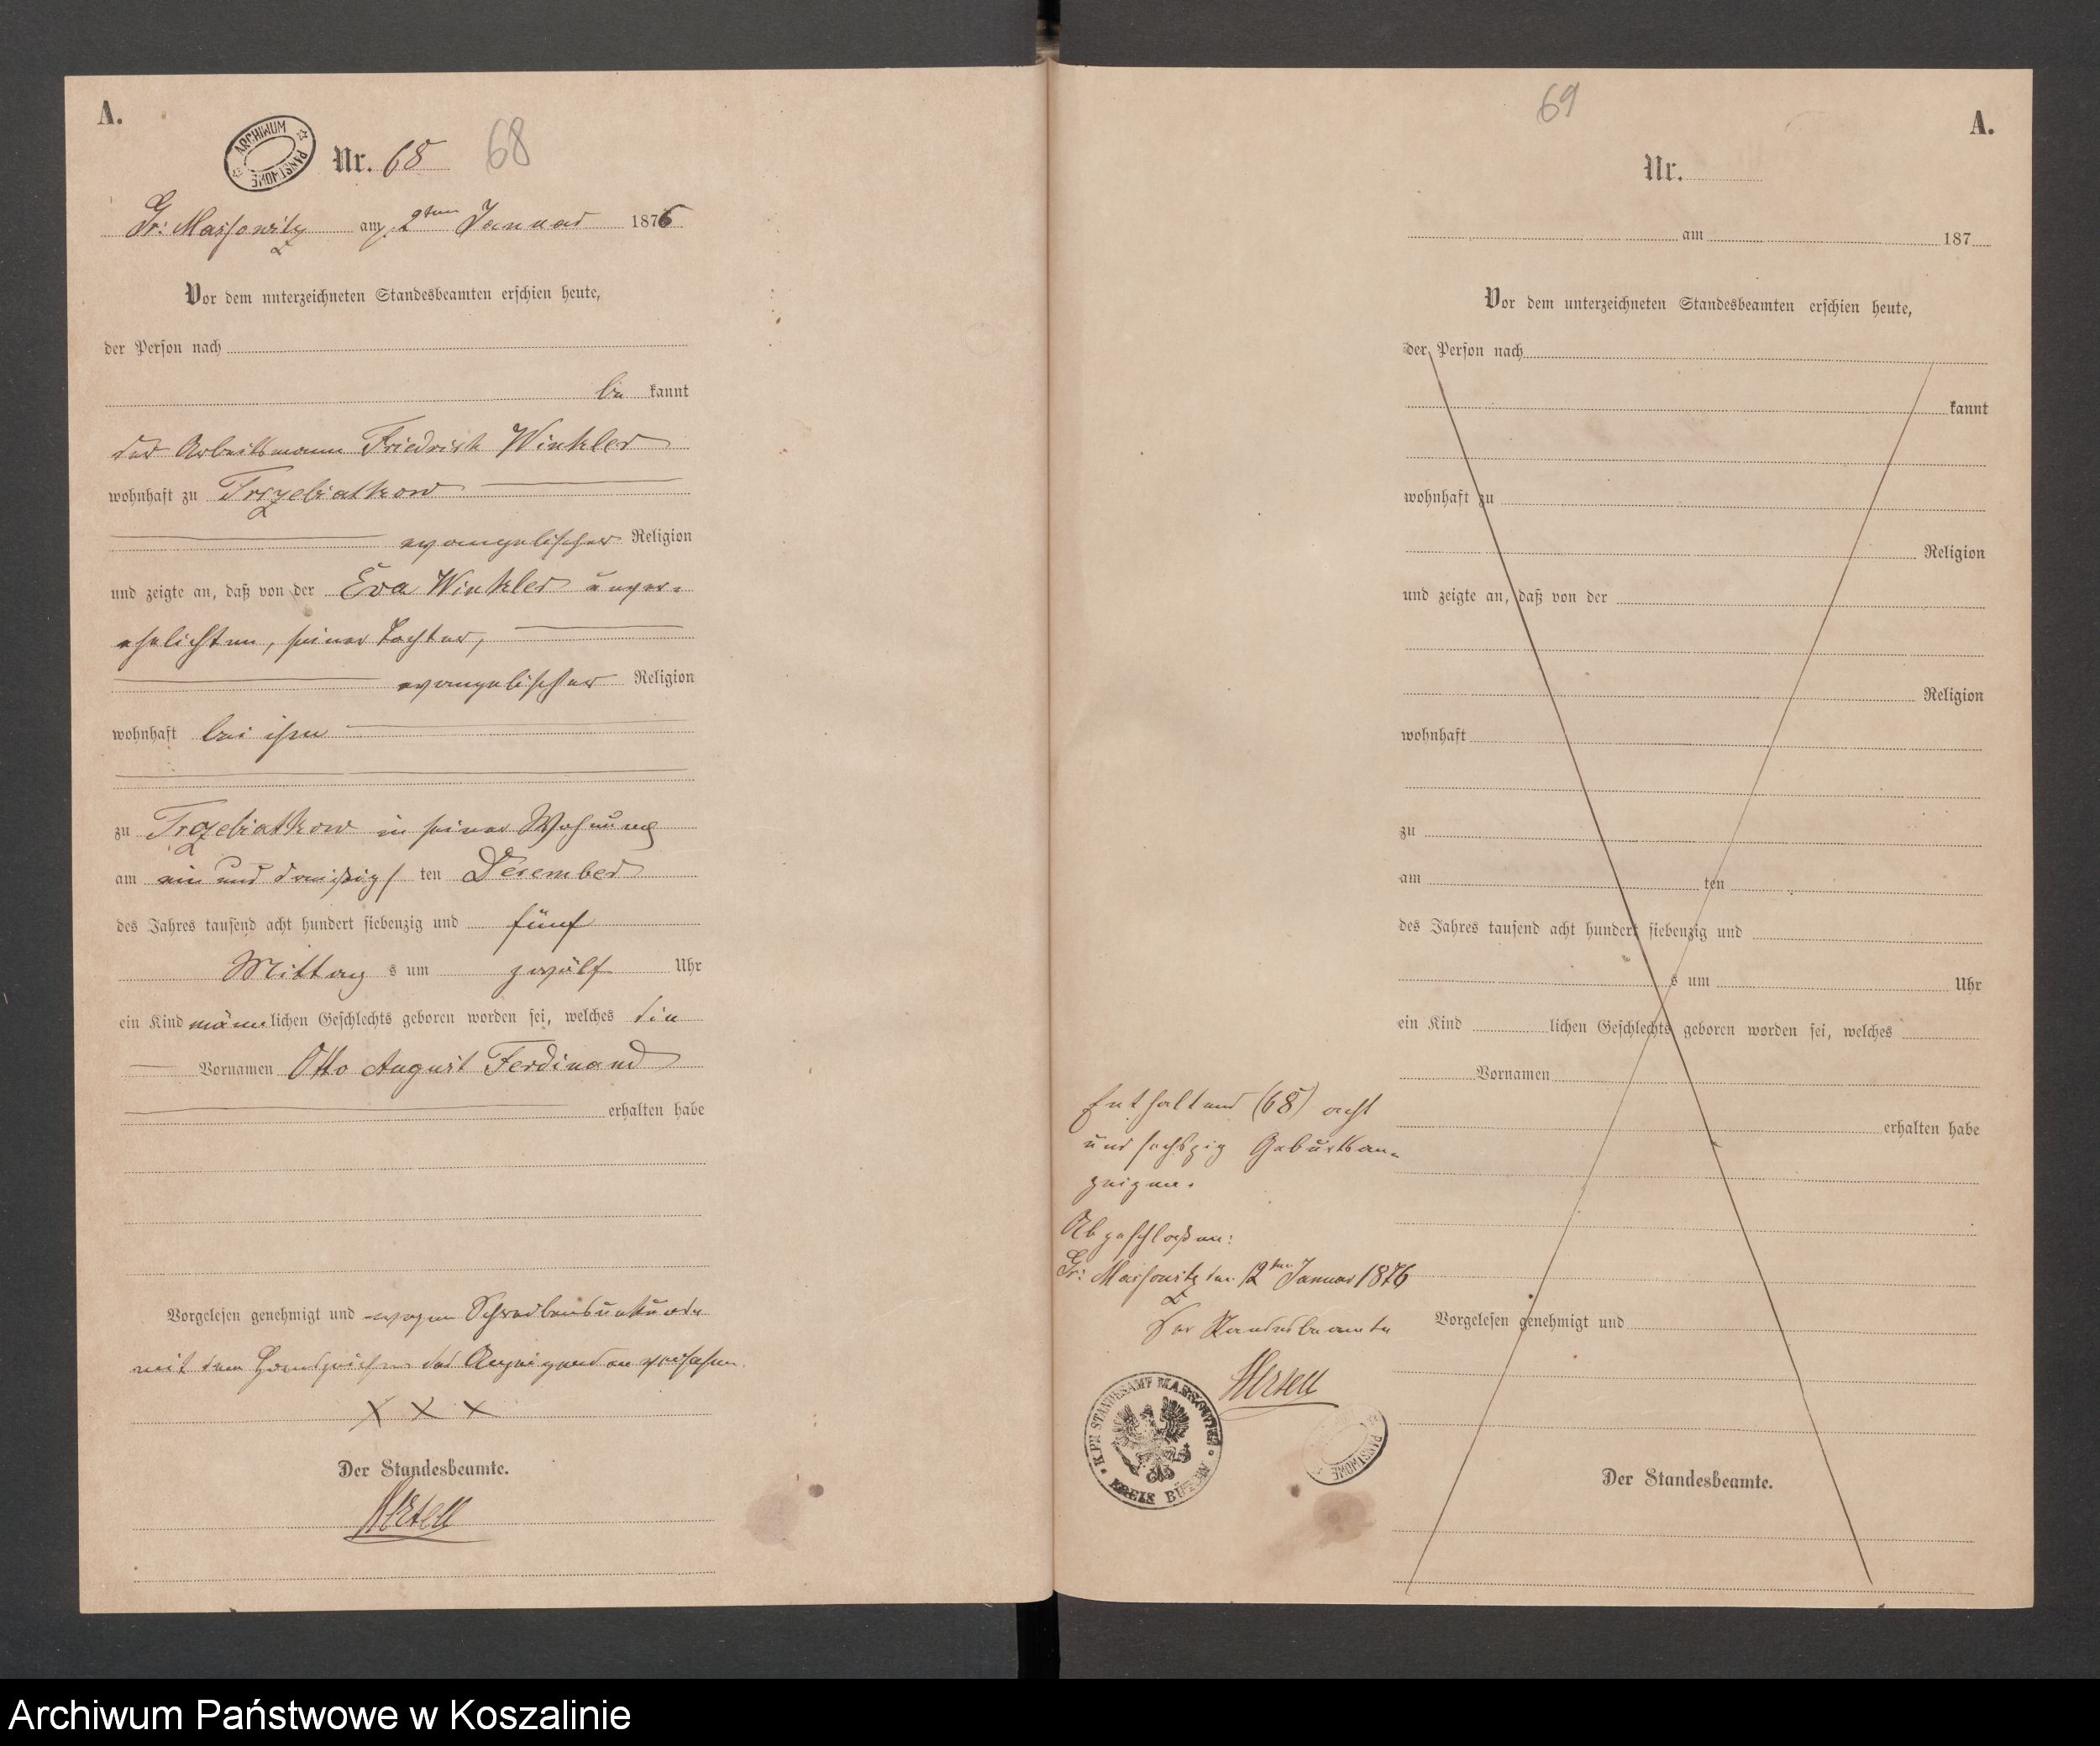 A.
ARCHIWUM PAŃSTWOWE
Nr. 68 68
Gr: Massowitz am 2ten Januar 1876
Vor dem unterzeichneten Standesbeamten erschien heute,
der Person nach
be kannt
der Arbeitsmann Friedrich Winkler
wohnhaft zu Trzebiatkow
evangelischer Religion
und zeigte an, daß von der Eva Winkler unver-
ehelichten, seiner Tochter,
evangelischer Religion
wohnhaft bei ihm
zu Trzebiatkow in seiner Wohnung
am ein und dreißigs ten Dezember
des Jahres tausend acht hundert siebenzig und fünf
Mittag s um zwölf Uhr
ein Kind männlichen Geschlechts geboren worden sei, welches die
Vornamen Otto August Ferdinand
erhalten habe
Vorgelesen genehmigt und wegen Schreibensunkunde
mit dem Handzeichen des Anzeigenden versehen.
X X X
Der Standesbeamte.
69
A.
Nr.
am 187
Vor dem unterzeichneten Standesbeamten erschien heute,
der Person nach
kannt
wohnhaft zu
Religion
und zeigte an, daß von der
Religion
wohnhaft
zu
am ten
des Jahres tausend acht hundert siebenzig und
s um Uhr
ein Kind lichen Geschlechts geboren worden sei, welches
Vornamen
erhalten habe
Vorgelesen genehmigt und
Der Standesbeamte.
Enthaltend (68) acht
und sechszig Geburtsan-
zeigen.
Abgeschloßen:
Gr: Massowitz den 12ten Januar 1876
Der Standesbeamte
K. PR. STANDESAMT MASSOWITZ KREIS BÜTOW
PAŃSTWOWE
Archiwum Państwowe w Koszalinie